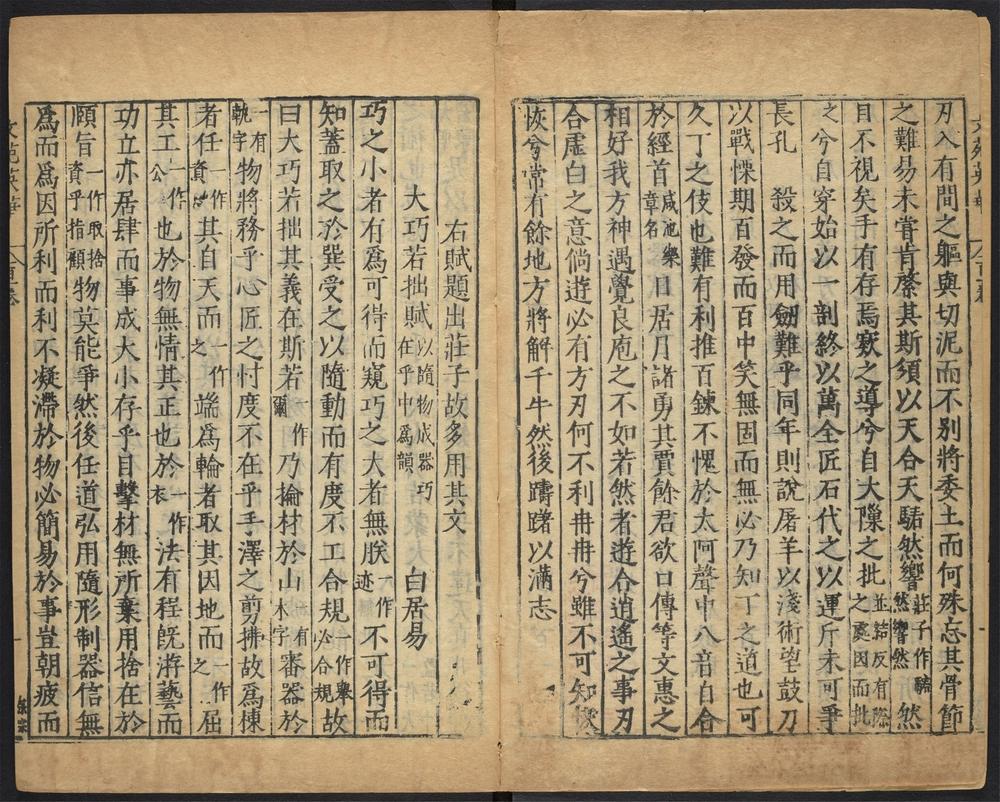 刃入有間之軀與切泥而不別將委土而何殊忘其骨節
之難易未嘗肯綮其斯須以天合天騞然響然莊子作騞然響然
目不視矣手有存焉窾之導兮自大隙之批並結反有際之處因而批
之兮自穿始以一剖終以萬全匠石代之以運斤未可爭
長孔　殺之而用劒難乎同年則說屠羊以淺術望鼓刀
以戰慄期百發而百中笑無固而無必乃知丁之道也可
久丁之伎也難有利推百鍊不愧於太阿聲中八音自合
於經首咸池樂章名目居月諸勇其賈餘君欲口傳等文惠之
相好我方神遇覺良庖之不如若然者遊合逍遙之事刃
合虛白之意倘遊必有方刃何不利冉冉兮雖不可知恢
恢兮常有餘地方將解千牛然後躊躇以滿志
右賦題出莊子故多用其文
大巧若拙賦以隨物成器巧在乎中爲韻　白居易
巧之小者有爲可得而窺巧之大者無朕一作迹不可得而
知蓋取之於巽受之以隨動而有度不工合規一作舉必合規故
曰大巧若拙其義在斯若一作爾乃掄材於山一有木字審器於
一有軌字物將務乎心匠之忖度不在乎手澤之剪拂故爲棟
者任一作資其自天而一作之端爲輪者取其因地而一作之屈
其工一作公也於物無情其正也於一作衣法有程旣游藝而
功立亦居肆而事成大小存乎目擊材無所棄用捨在於
頤旨一作取捨資乎指顧物莫能爭然後任道弘用隨形制器信無
爲而爲因所利而利不凝滯於物必簡易於事豈朝疲而